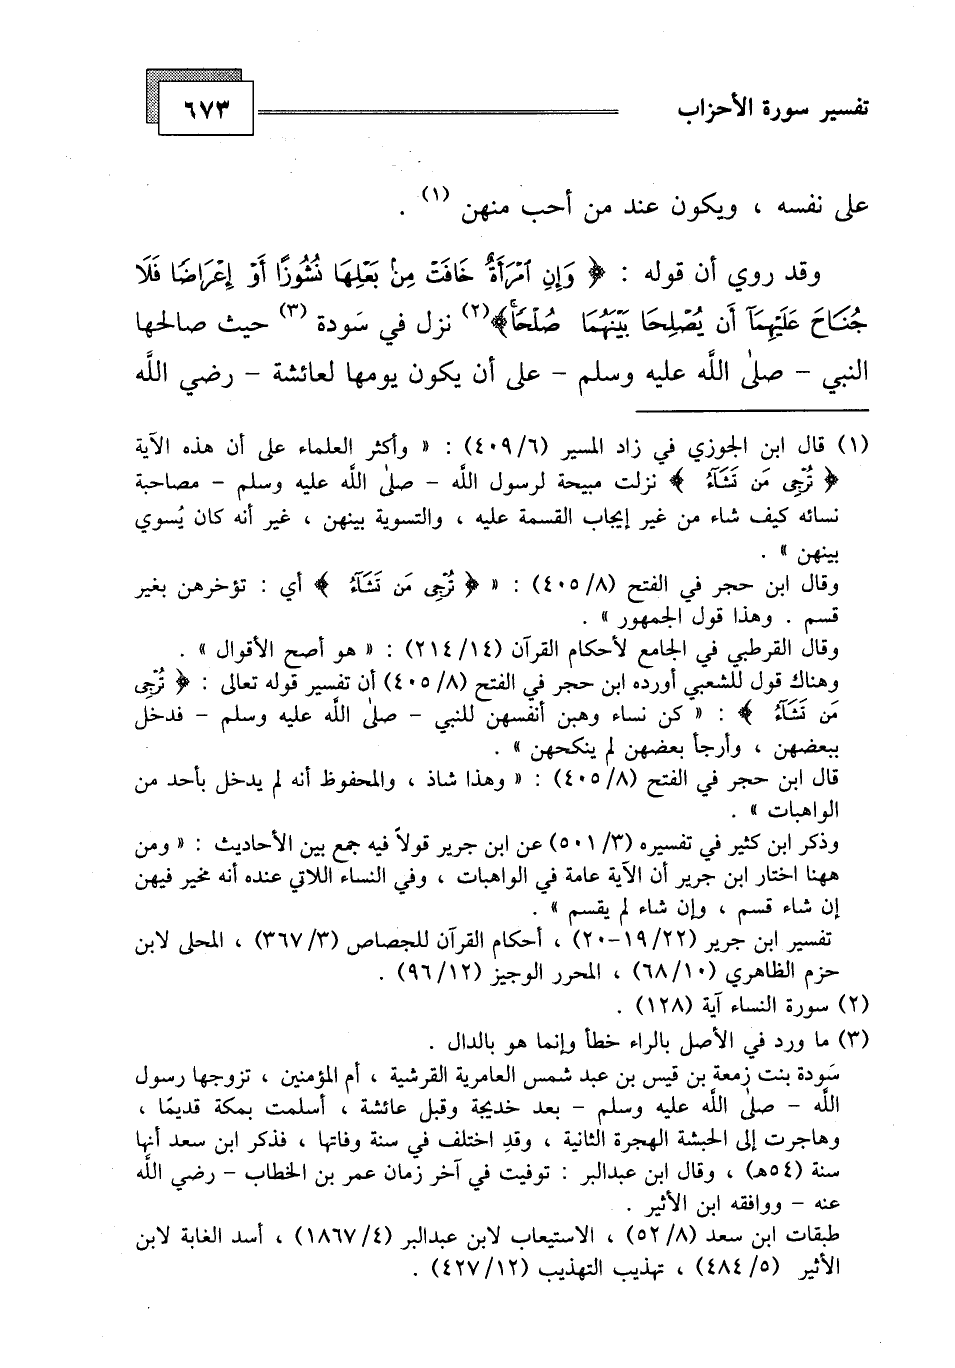 تفسير سورة الأحزاب ٦٧٣
على نفسه ، ويكون عند من أحب منهن (١) .
وقد روي أن قوله : ﴿ وَإِنِ ٱمْرَأَةٌ خَافَتْ مِنۢ بَعْلِهَا نُشُوزًا أَوْ إِعْرَاضًا فَلَا
جُنَاحَ عَلَيْهِمَآ أَن يُصْلِحَا بَيْنَهُمَا صُلْحًاۚ﴾(٢) نزل في سَودة (٣) حيث صالحها
النبي – صلى اللَّه عليه وسلم – على أن يكون يومها لعائشة – رضي اللَّه
(١) قال ابن الجوزي في زاد المسير (٤٠٩/٦) : « وأكثر العلماء على أن هذه الآية
﴿ تُرْجِى مَن تَشَآءُ ﴾ نزلت مبيحة لرسول اللَّه – صلى اللَّه عليه وسلم – مصاحبة
نسائه كيف شاء من غير إيجاب القسمة عليه ، والتسوية بينهن ، غير أنه كان يُسوي
بينهن » .
وقال ابن حجر في الفتح (٤٠٥/٨) : « ﴿ تُرْجِى مَن تَشَآءُ ﴾ أي : تؤخرهن بغير
قسم . وهذا قول الجمهور » .
وقال القرطبي في الجامع لأحكام القرآن (٢١٤/١٤) : « هو أصح الأقوال » .
وهناك قول للشعبي أورده ابن حجر في الفتح (٤٠٥/٨) أن تفسير قوله تعالى : ﴿ تُرْجِى
مَن تَشَآءُ ﴾ : « كن نساء وهبن أنفسهن للنبي – صلى اللَّه عليه وسلم – فدخل
ببعضهن ، وأرجأ بعضهن لم ينكحهن » .
قال ابن حجر في الفتح (٤٠٥/٨) : « وهذا شاذ ، والمحفوظ أنه لم يدخل بأحد من
الواهبات » .
وذكر ابن كثير في تفسيره (٥٠١/٣) عن ابن جرير قولاً فيه جمع بين الأحاديث : « ومن
ههنا اختار ابن جرير أن الآية عامة في الواهبات ، وفي النساء اللاتي عنده أنه مخير فيهن
إن شاء قسم ، وإن شاء لم يقسم » .
تفسير ابن جرير (١٩/٢٢-٢٠) ، أحكام القرآن للجصاص (٣٦٧/٣) ، المحلى لابن
حزم الظاهري (٦٨/١٠) ، المحرر الوجيز (٩٦/١٢) .
(٢) سورة النساء آية (١٢٨) .
(٣) ما ورد في الأصل بالراء خطأ وإنما هو بالدال .
سَودة بنت زمعة بن قيس بن عبد شمس العامرية القرشية ، أم المؤمنين ، تزوجها رسول
اللَّه – صلى اللَّه عليه وسلم – بعد خديجة وقبل عائشة ، أسلمت بمكة قديمًا ،
وهاجرت إلى الحبشة الهجرة الثانية ، وقدِ اختلف في سنة وفاتها ، فذكر ابن سعد أنها
سنة (٥٤هـ) ، وقال ابن عبدالبر : توفيت في آخر زمان عمر بن الخطاب – رضي اللَّه
عنه – ووافقه ابن الأثير .
طبقات ابن سعد (٥٢/٨) ، الاستيعاب لابن عبدالبر (١٨٦٧/٤) ، أسد الغابة لابن
الأثير (٤٨٤/٥) ، تهذيب التهذيب (٤٢٧/١٢) .